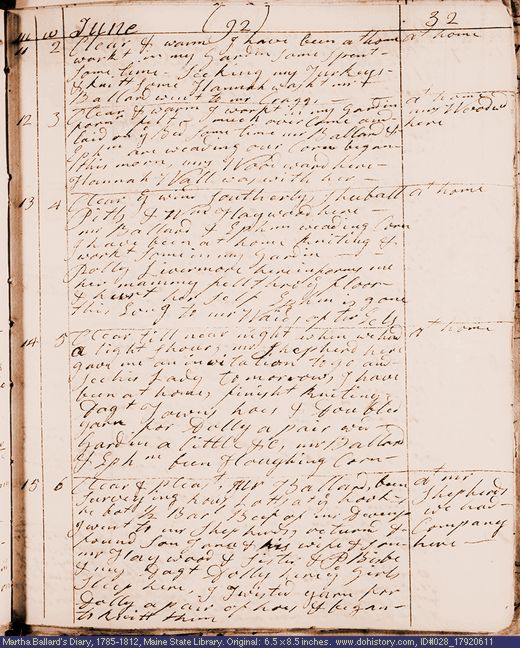 June (92) 32
m w
11 2 Clear & warm I have been at home at home
workt in my gardin some spent
some time Seeking my Turkeys
& knit Some Hannah washt mr
Ballard went to mr
12 3 Clear & warm I workt in my gardin at home
mr Woodwd
here
laid on ye Bed some time mr Ballard &
Ephm are weading our Corn began
this morn, mrs Woodward here
Hannah Wall was with her
13 4 Clear & wind Southerly, Sheuball at home
Pitts & Wm Hayward here
mr Ballard & Ephm weading Corn
I have been at home knitting &
workt some in my gardin
Polly Livermore here informs me
her mammy fell thro ye floor
& hurt her Self Ephm is gone
this Evng to mr
14 5 Clear till near night when we had at home
a light shower mr Shepherd here
gave me an invitation to go and
see his Lady tomorrow, I have
been at home, finisht knitting
Dagt hoes & Doubled
yarn for Dolly a pair
Gardin a little &c, mr Ballard
& Ephm been Ploughing Corn
15 6 Clear & pleast, Mr Ballard been at mr
Shepherds
we had
Company
here
Surveying
he bot Beef of mr
I went to mr Shepherds returnd &
found Son & his wife & Son
mr Haywood & Sister &
& my Dagt Dolly here, ye girls
sleep here, I Twisted yarn for
Dolly a pair of hoes & began
to knitt them
Martha Ballard's Diary, 1785-1812, Maine State Library. Original: 6.5 x 8.5 inches. www.dohistory.com, ID#028_17920611